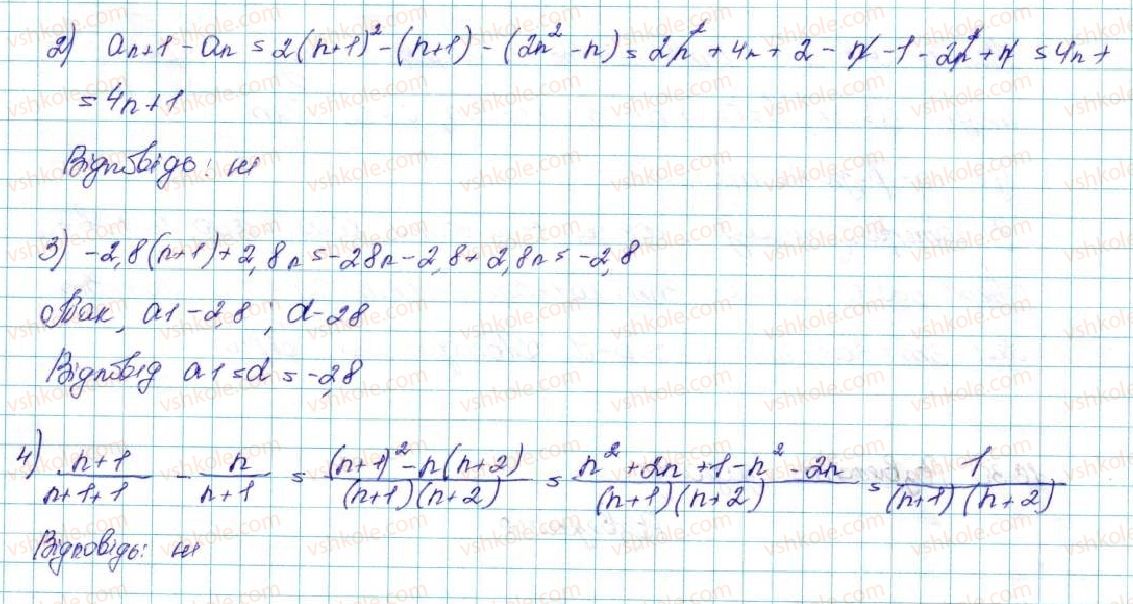 2) aₙ₊₁ - aₙ = 2(n+1)² - (n+1) - (2n² - n) = 2n² + 4n + 2 - n - 1 - 2n² + n = 4n +
= 4n + 1
Відповідь: ні
3) -2,8(n+1) + 2,8n = -28n - 2,8 + 2,8n = -2,8
Так, a1 - 2,8; d - 28
Відповід a1 = d = -2,8
4) (n+1)/(n+1+1) - n/(n+1) = ((n+1)² - n(n+2))/((n+1)(n+2)) = (n² + 2n + 1 - n² - 2n)/((n+1)(n+2)) = 1/((n+1)(n+2))
Відповідь: ні